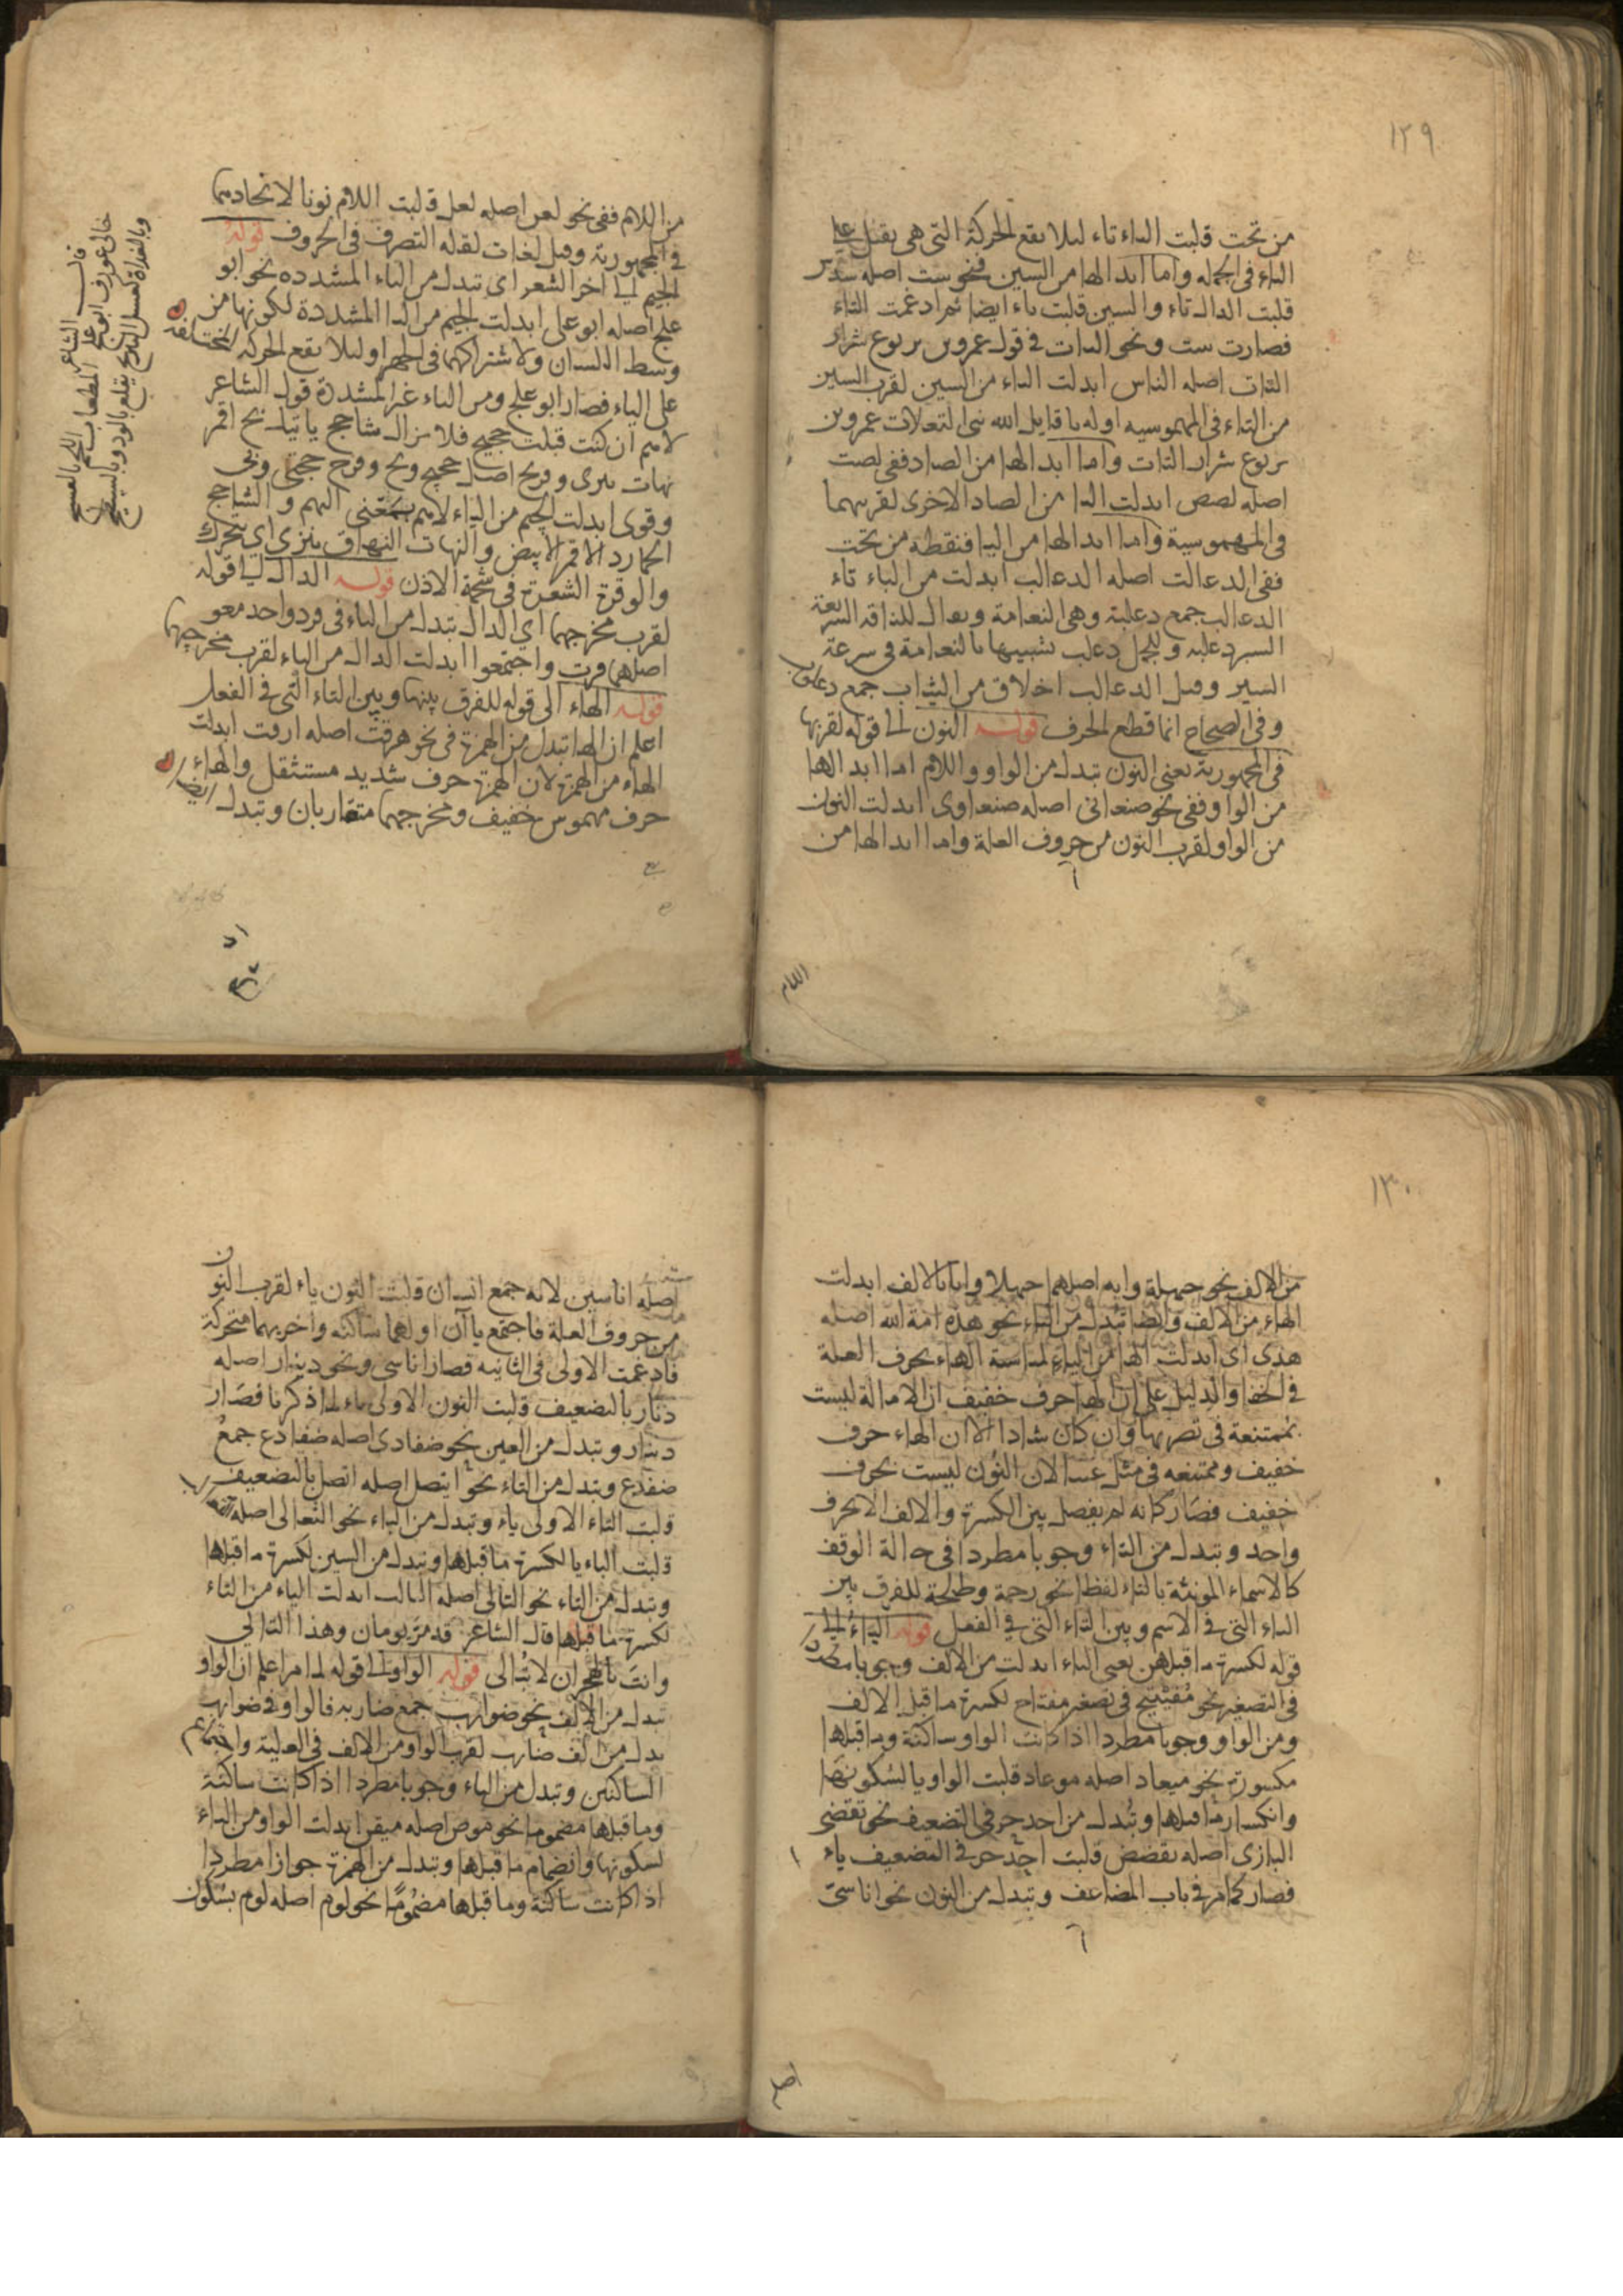 ١٢٩
من تحت قلبت الياء تاء ليلا يقع الحركة التى هى يقتل على
الياء فى الجمله واما ابدالها من السين فنحو ست اصله سدس
قلبت الدال تاء والسين قلبت تاء ايضا ثم ادغمت التاء
فصارت ست ونحو النات فى قول عمرو بن يربوع شرار
النات اصله الناس ابدلت التاء من السين لقرب السين
من التاء فى المهموسيه اوله يا قايل الله بنى السعلات عمرو بن
يربوع شرار النات واما ابدالها من الصاد ففى لصت
اصله لصص ابدلت التا من الصاد الاخرى لقربهما
فى المهموسية واما ابدالها من البا فنقطه من تحت
ففى الدعالت اصله الدعالب ابدلت من الباء تاء
الدعالب جمع دعلبة وهى النعامة ويقال للناقة السريعة
السير دعلبه وللجمل دعلب تشبيها بالنعامة فى سرعة
السير وقيل الدعالب اخلاق من الثياب جمع دعلوب
وفى الصحاح انها قطع الخرف قوله النون الى قوله لقربها
فى المجهورية يعنى النون تبدل من الواو واللام اما ابدالها
من الواو ففى نحو صنعانى اصله صنعاوى ابدلت النون
من الواو لقرب النون من حروف العلة واما ابدالها من
اللام
من اللام ففى نحو لعن اصله لعل قلبت اللام نونا لاتحادهما
فى المجهورية وقيل لغات لقله التصرف فى الحروف قوله
الجيم الى اخر الشعر اى تبدل من الياء المشدده نحو ابو
علج اصله ابو على ابدلت الجيم من اليا المشددة لكونها من
وسط اللسان ولاشتراكهما فى الجهر او ليلا يقع الحركه المختلفه
على الياء فصار ابو علج ومن الياء غير المشددة قول الشاعر
لاهم ان كنت قبلت حجتج فلا يزال شاحج ياتيك بج اقمر
نهات ينزى وفرتج اصله حجتج وبج وفرتج حجتى وبى
وقوى ابدلت الجيم من الياء لاهم بمعنى اللهم والشاحج
الحمار والاقمر الابيض والنهات النهاق ينزى اى يتحرك
والوفرة الشعرة فى شحمة الاذن قوله الدال الى قوله
لقرب مخرجهما اى الدال تبدل من التاء فى فزد واجدمعو
اصلهما فزت واجتمعوا ابدلت الدال من التاء لقرب مخرجهما
قوله الهاء الى قوله للفرق بينها وبين التاء التى فى الفعل
اعلم ان الها تبدل من الهمزة فى نحو هرقت اصله ارقت ابدلت
الهاء من الهمزة لان الهمزة حرف شديد مستثقل والهاء
حرف مهموس خفيف ومخرجهما متقاربان وتبدل ايضا
قال الشاعر
خالى عويف وابو علج المطعمان اللحم بالعشج
وبالغداة كسر البرنج يقلع بالود وبالصيصج
١٣٠
من الالف نحو حيهله وانه اصلهما حيهلا وانا بالالف ابدلت
الهاء من الالف وايضا تبدل من الياء نحو هذه امة الله اصله
هذى اى ابدلت الها من الياء لمناسبة الهاء بحرف العلة
فى الخفا والدليل على ان الها حرف خفيف ان الامالة ليست
بممتنعة فى تضربها وان كان شاذا الا ان الهاء حرف
خفيف وممتنعه فى مثل عنبا لان النون ليست بحرف
خفيف فصار كانه لم يفصل بين الكسرة والالف الا بحرف
واحد وتبدل من التاء وجوبا مطردا فى حالة الوقف
كالاسماء المونثة بالتاء لفظا نحو رحمة وطلحة للفرق بين
التاء التى فى الاسم وبين التاء التى فى الفعل قوله الياء الى
قوله لكسرة ما قبلهن يعنى الياء ابدلت من الالف وجوبا مطردا
فى التصغير نحو مفيتيح فى تصغير مفتاح لكسرة ما قبل الالف
ومن الواو وجوبا مطردا اذا كانت الواو ساكنة وما قبلها
مكسورة نحو ميعاد اصله موعاد قلبت الواو يا لسكونها
وانكسار ما قبلها وتبدل من احد حرفى التضعيف نحو تقضى
البازى اصله تقضض قلبت احد حرفى التضعيف ياء
فصار كما مر فى باب المضاعف وتبدل من النون نحو اناسىّ
اصل
اصله اناسين لانه جمع انسان قلبت النون ياء لقرب النون
من حروف العلة فاجتمع ياآن اولهما ساكنه واخريهما متحركة
فادغمت الاولى فى الثانيه فصار اناسى ونحو دينار اصله
دنار بالتضعيف قلبت النون الاولى ياء لما ذكرنا فصار
دينار وتبدل من العين نحو ضفادى اصله ضفادع جمع
ضفدع وتبدل من التاء نحو ايتصل اصله اتصل بالتضعيف
قلبت التاء الاولى ياء وتبدل من الباء نحو الثعالى اصله
قلبت الباء يا لكسرة ما قبلها وتبدل من السين لكسرة ما قبلها
وتبدل من الثاء نحو الثالى اصله الثالث ابدلت الياء من الثاء
لكسرة ما قبلها قال الشاعر قد مر يومان وهذا الثالي
وانت بالهجران لا تبالى قوله الواو الى قوله لما مر اعلم ان الواو
تبدل من الالف نحو ضوارب جمع ضاربه فالواو فى ضوارب
بدل من الف ضارب لقرب الواو من الالف فى العلية واجتماع
الساكنين وتبدل من الياء وجوبا مطردا اذا كانت ساكنة
وما قبلها مضموما نحو موقن اصله ميقن ابدلت الواو من الياء
لسكونها وانضمام ما قبلها وتبدل من الهمزة جوازا مطردا
اذا كانت ساكنة وما قبلها مضموما نحو لوم اصله لؤم بسكون